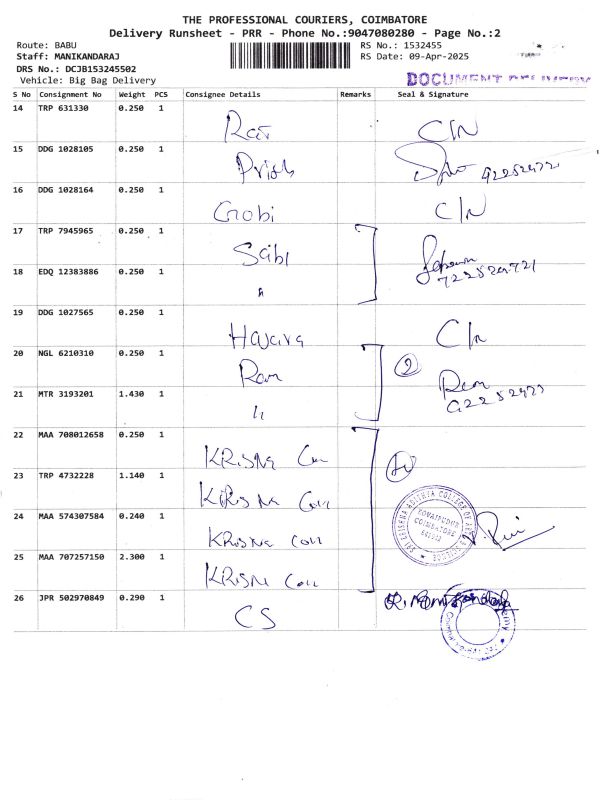 THE PROFESSIONAL COURIERS, COIMBATORE
Delivery Runsheet - PRR - Phone No.:9047080280 - Page No.:2
Route: BABU RS No.: 1532455
Staff: MANIKANDARAJ RS Date: 09-Apr-2025
DRS No.: DCJB153245502
Vehicle: Big Bag Delivery
DOCUMENT DELIVERY
S No Consignment No Weight PCS Consignee Details Remarks Seal & Signature
14 TRP 631330 0.250 1
C/N
15 DDG 1028105 0.250 1
16 DDG 1028164 0.250 1
Gobi C/N
17 TRP 7945965 0.250 1
Sabl
18 EDQ 12383886 0.250 1
19 DDG 1027565 0.250 1
C/N
20 NGL 6210310 0.250 1
Ram 2
21 MTR 3193201 1.430 1
Ram
22 MAA 708012658 0.250 1
KRISNA
23 TRP 4732228 1.140 1
KRISNA
24 MAA 574307584 0.240 1
KRISNA
25 MAA 707257150 2.300 1
KRISNA
SRI KRISHNA ADITHYA COLLEGE OF ARTS & SCIENCE
KOVAIPUDUR
COIMBATORE
26 JPR 502970849 0.290 1
CS